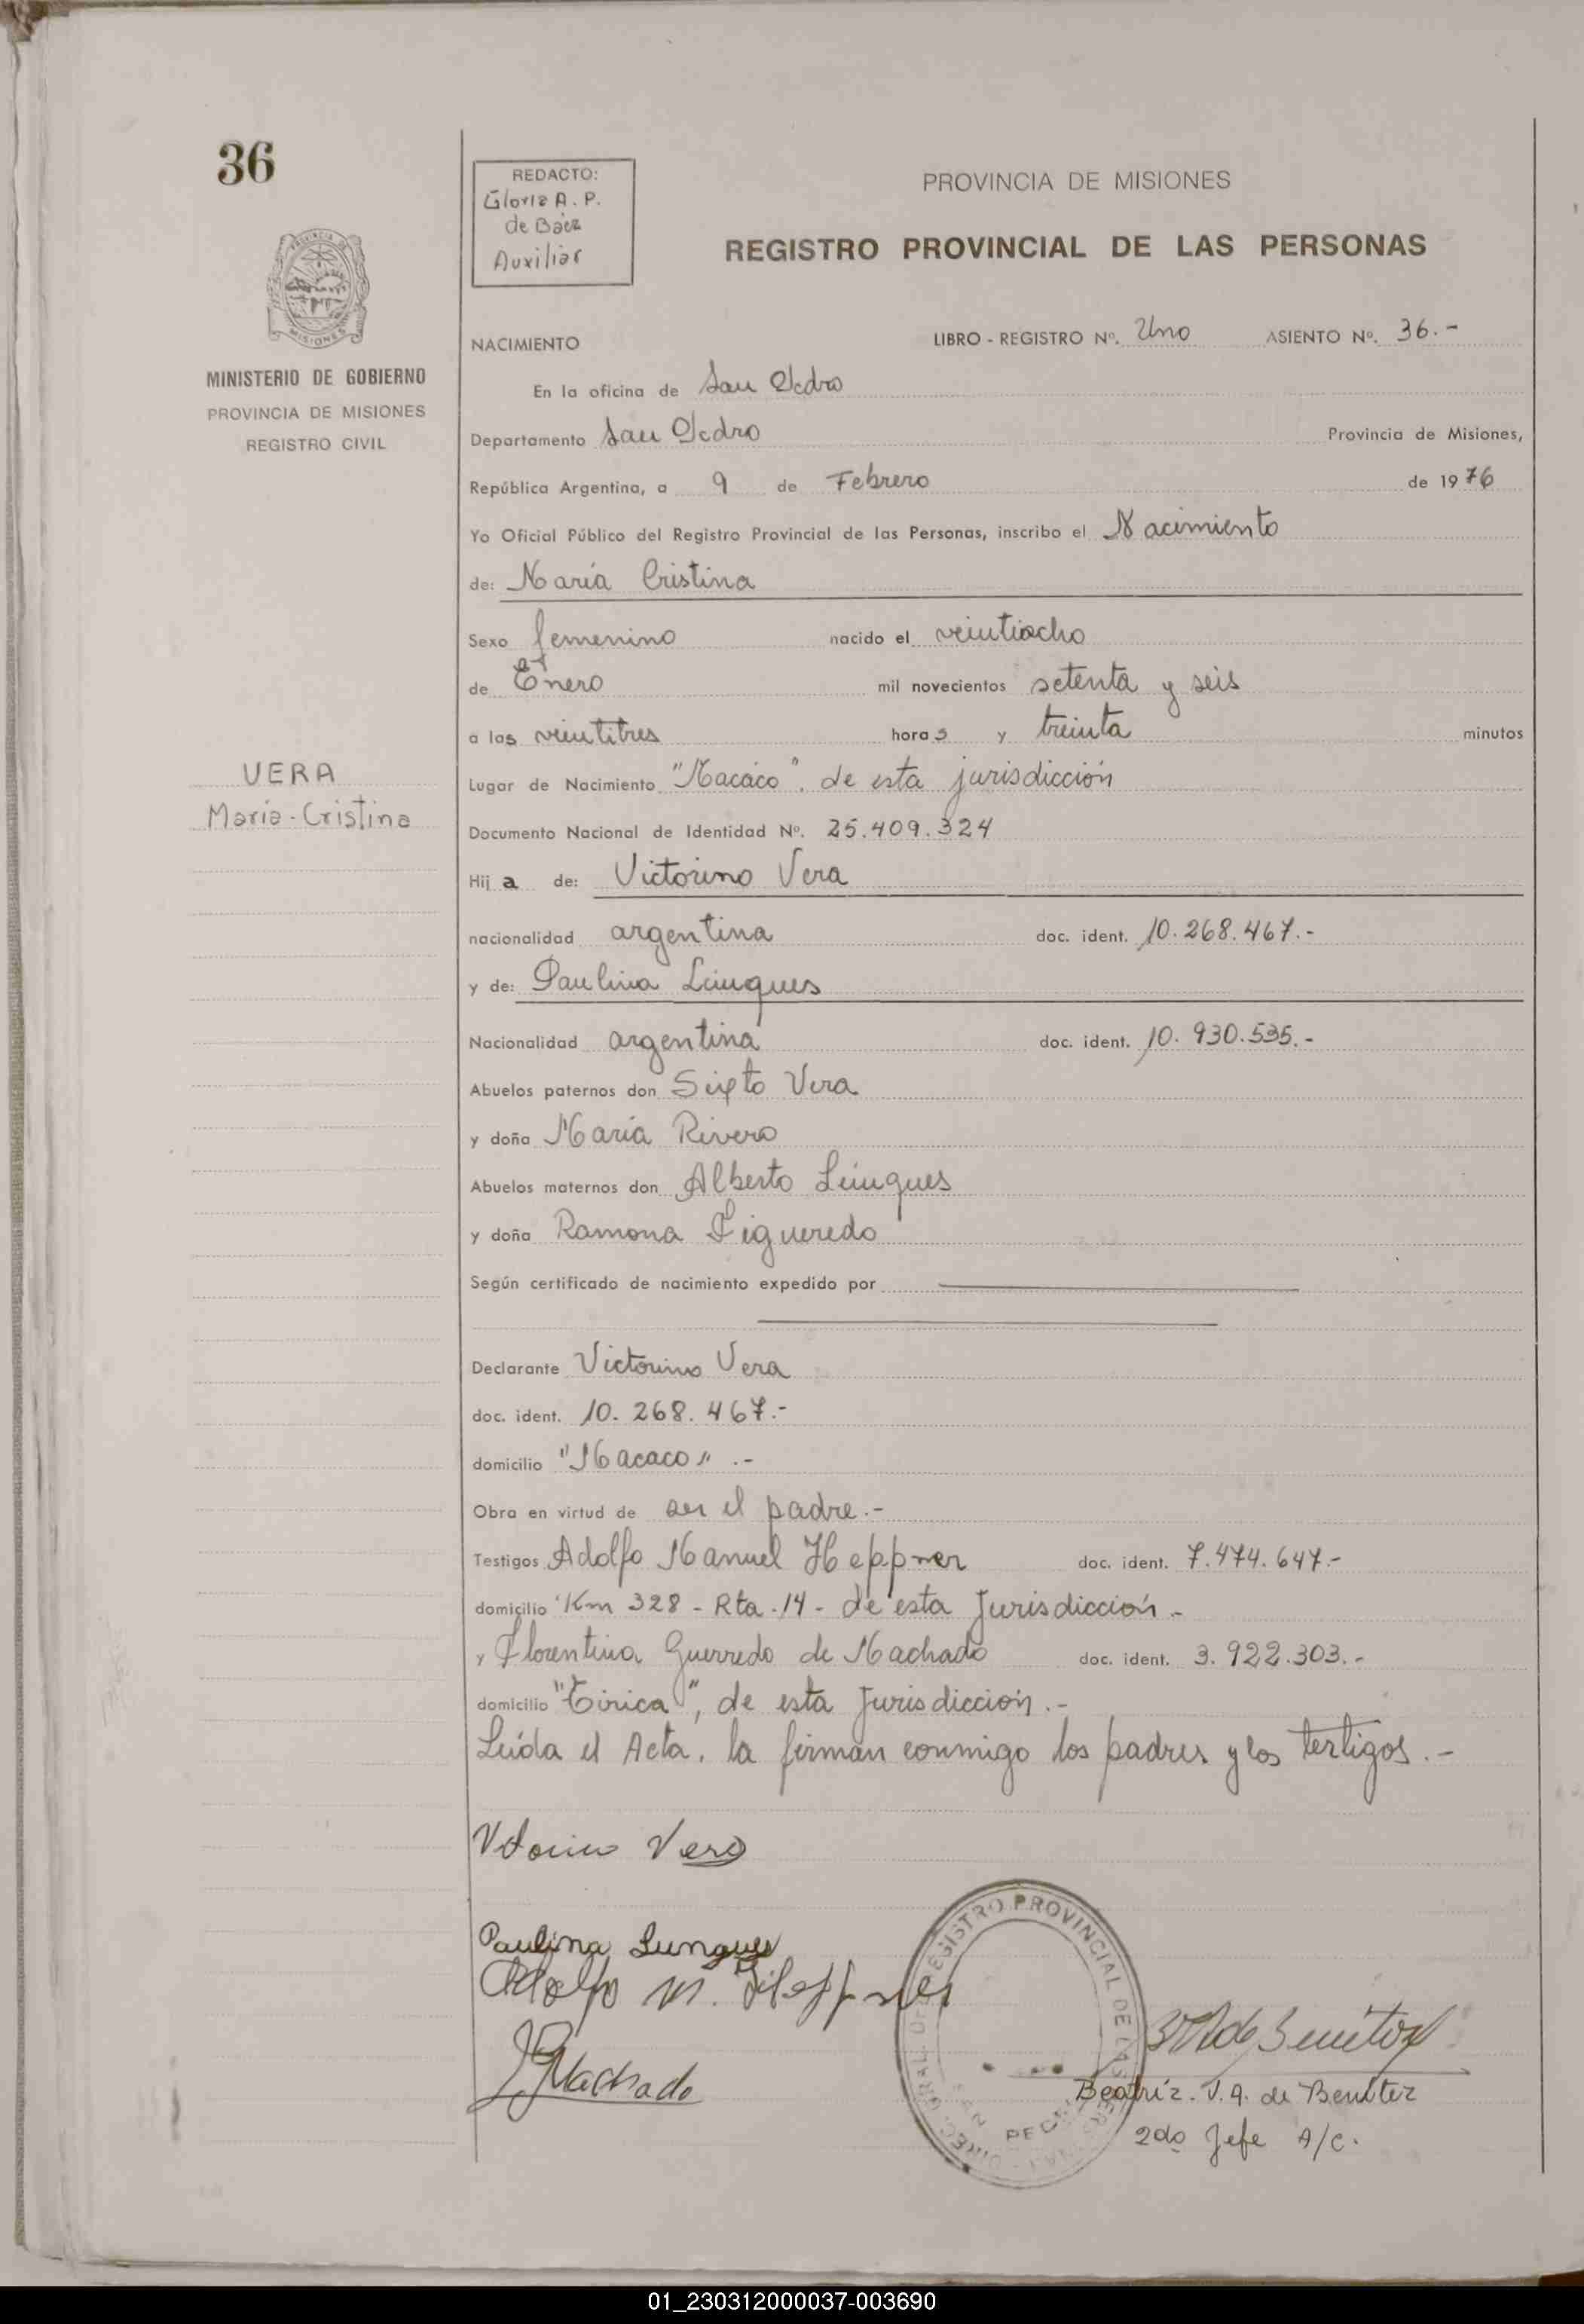 36
REDACTO:
Gloria A. P.
de Báez
Auxiliar
PROVINCIA DE MISIONES
REGISTRO PROVINCIAL DE LAS PERSONAS
PROVINCIA DE
MISIONES
MINISTERIO DE GOBIERNO
PROVINCIA DE MISIONES
REGISTRO CIVIL
NACIMIENTO LIBRO - REGISTRO Nº. Uno ASIENTO Nº. 36.-
En la oficina de San Pedro
Departamento San Pedro Provincia de Misiones,
República Argentina, a 9 de Febrero de 1976
Yo Oficial Público del Registro Provincial de las Personas, inscribo el Nacimiento
de: María Cristina
Sexo femenino nacido el veintiocho
de Enero mil novecientos setenta y seis
a las veintitres horas y treinta minutos
VERA
María-Cristina
Lugar de Nacimiento "Macaco". de esta jurisdicción
Documento Nacional de Identidad Nº. 25.409.324
Hija de: Victorino Vera
nacionalidad argentina doc. ident. 10.268.467.-
y de: Paulina Lüngues
Nacionalidad argentina doc. ident. 10.930.535.-
Abuelos paternos don Sixto Vera
y doña María Rivero
Abuelos maternos don Alberto Lüngues
y doña Ramona Figueredo
Según certificado de nacimiento expedido por
Declarante Victorino Vera
doc. ident. 10.268.467.-
domicilio "Macaco" .-
Obra en virtud de ser el padre.-
Testigos Adolfo Manuel Heppner doc. ident. 7.474.647.-
domicilio Km 328 - Rta.14 - de esta Jurisdicción -
y Florentina Guerredo de Machado doc. ident. 3.922.303.-
domicilio "Tirica", de esta Jurisdicción.-
Leída el Acta, la firman conmigo los padres y los testigos.-
Vitorino Vera
Paulina Lungues
Adolfo M. Heppner
Machado
REGISTRO PROVINCIAL DE LAS
SAN PEDRO
Beatríz. V. A. de Benítez
2do Jefe A/C.
01_230312000037-003690